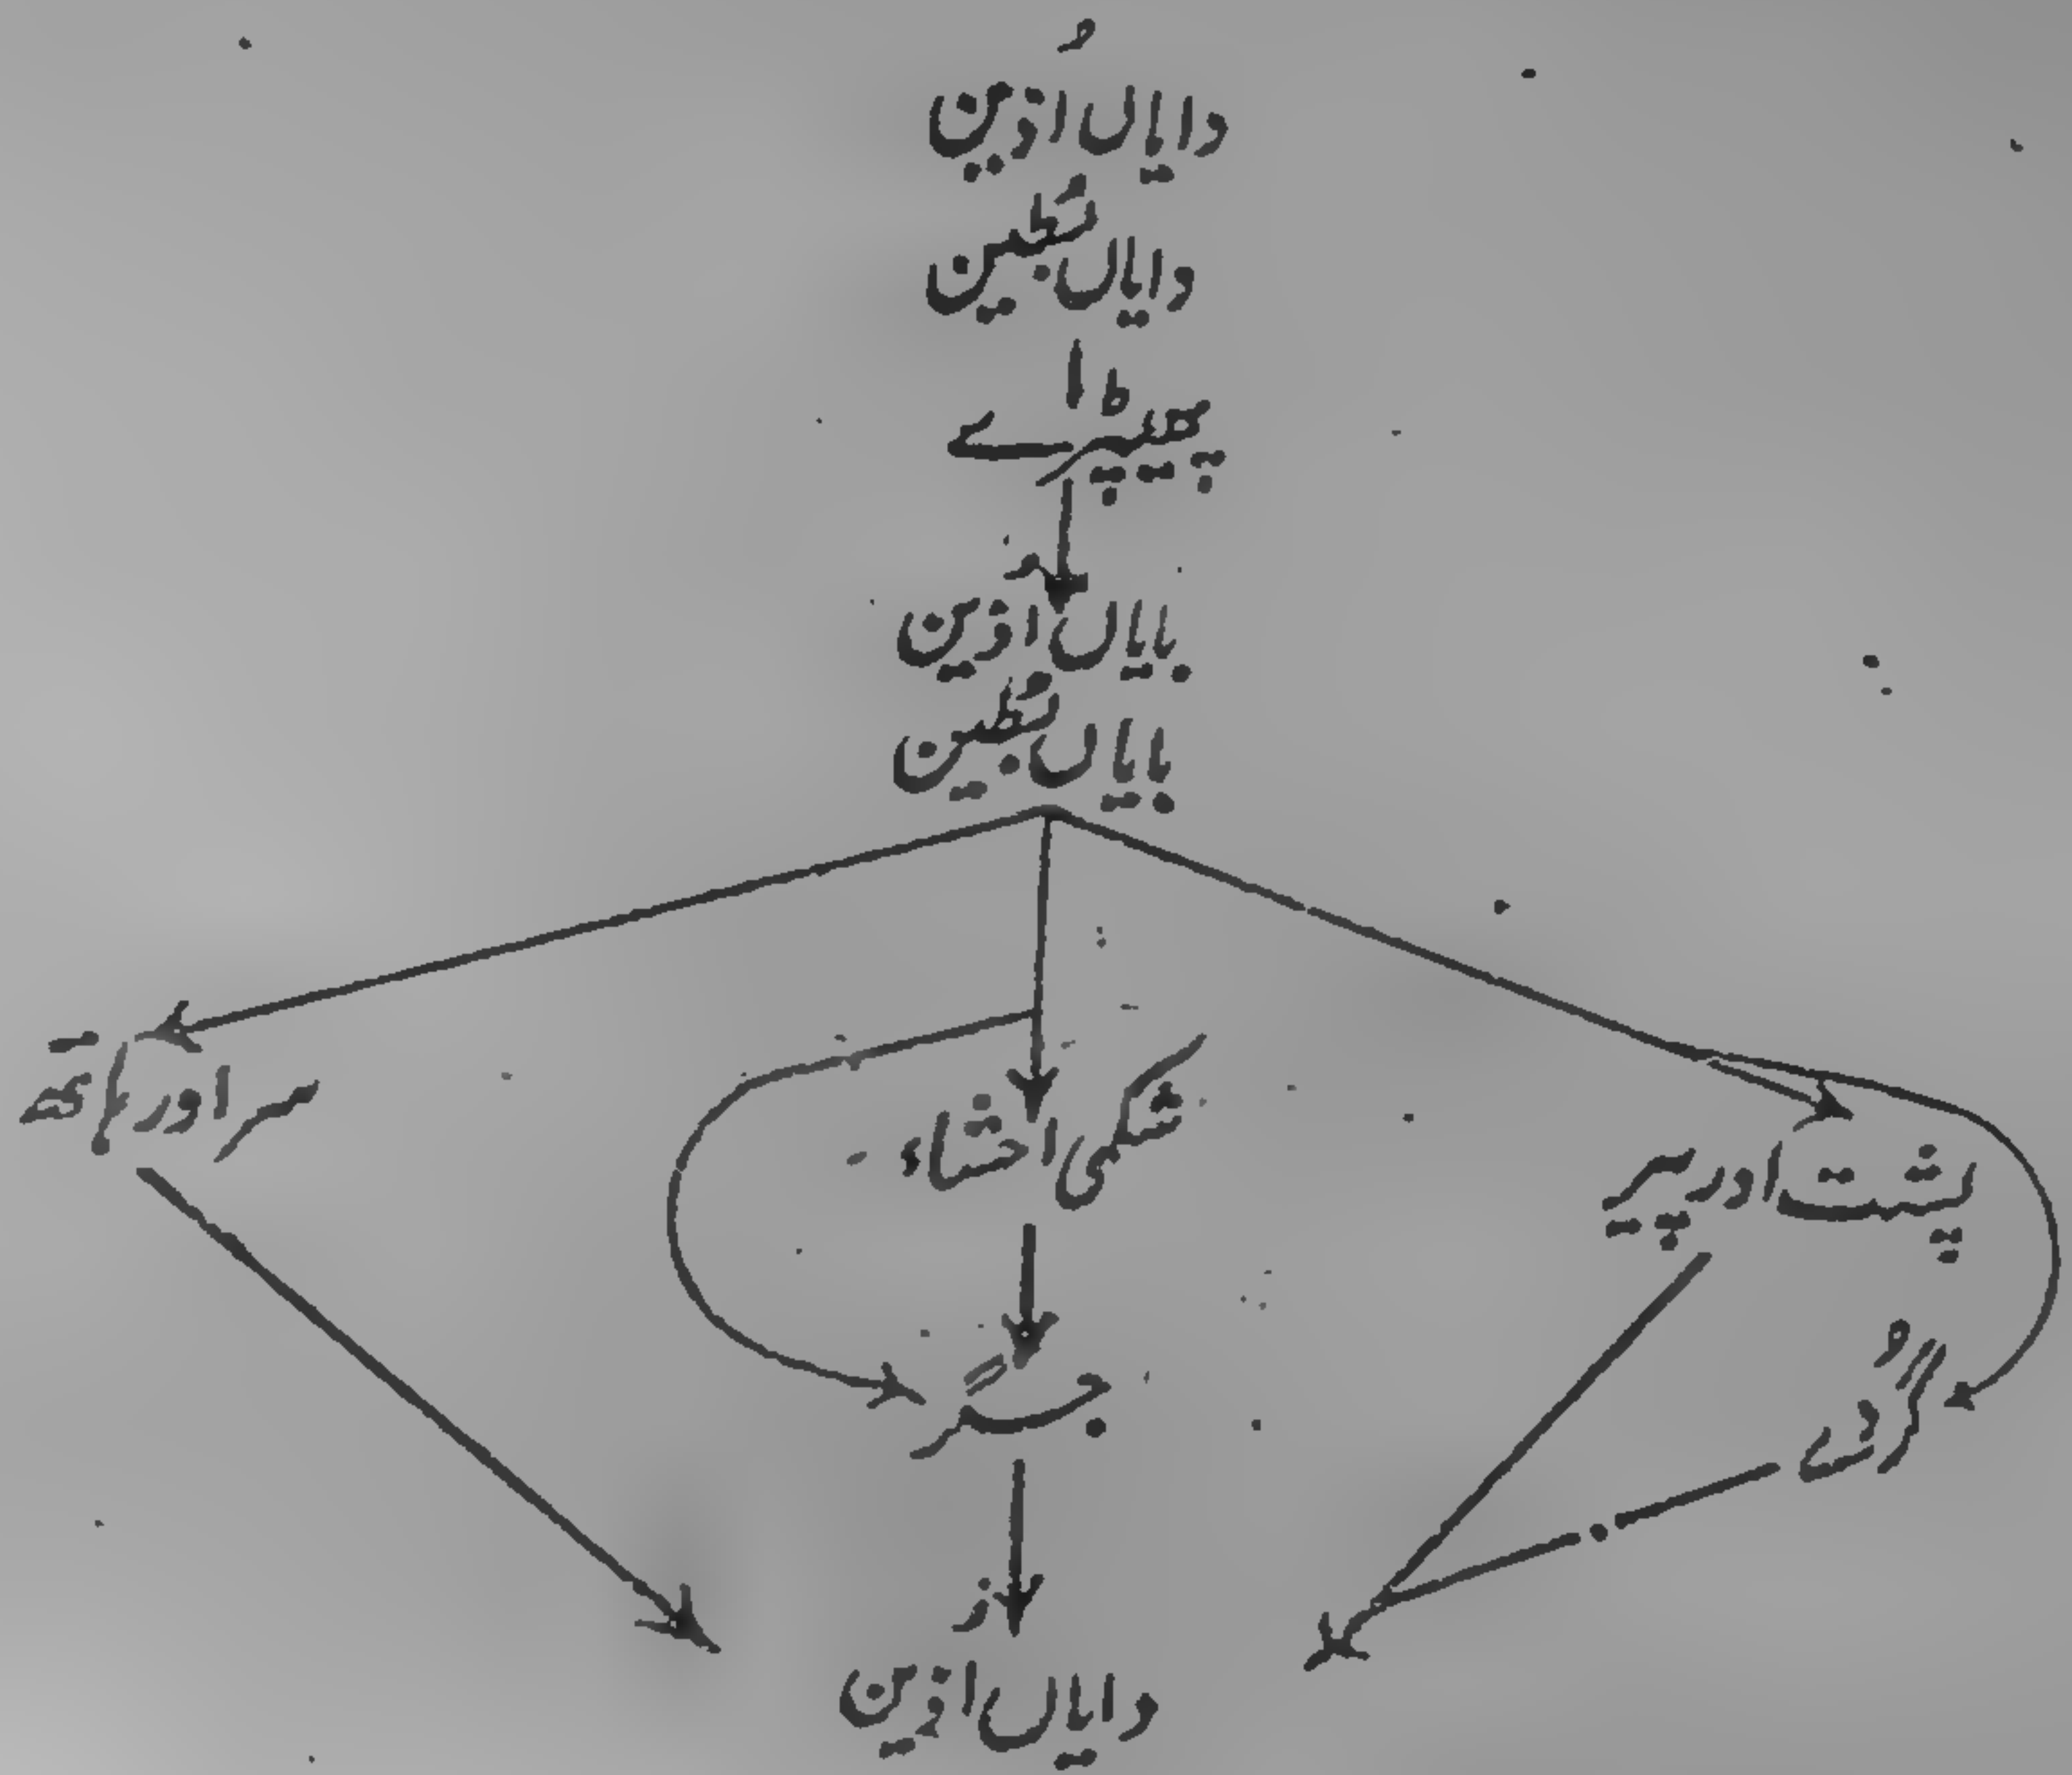 دایاں اذین
دایاں بطین
پھیپھڑے
بایاں اذین
بایاں بطین
سر اور بازو
شکمی احشاء
پشت اور پیر
گردے
جگر
دایاں اذین